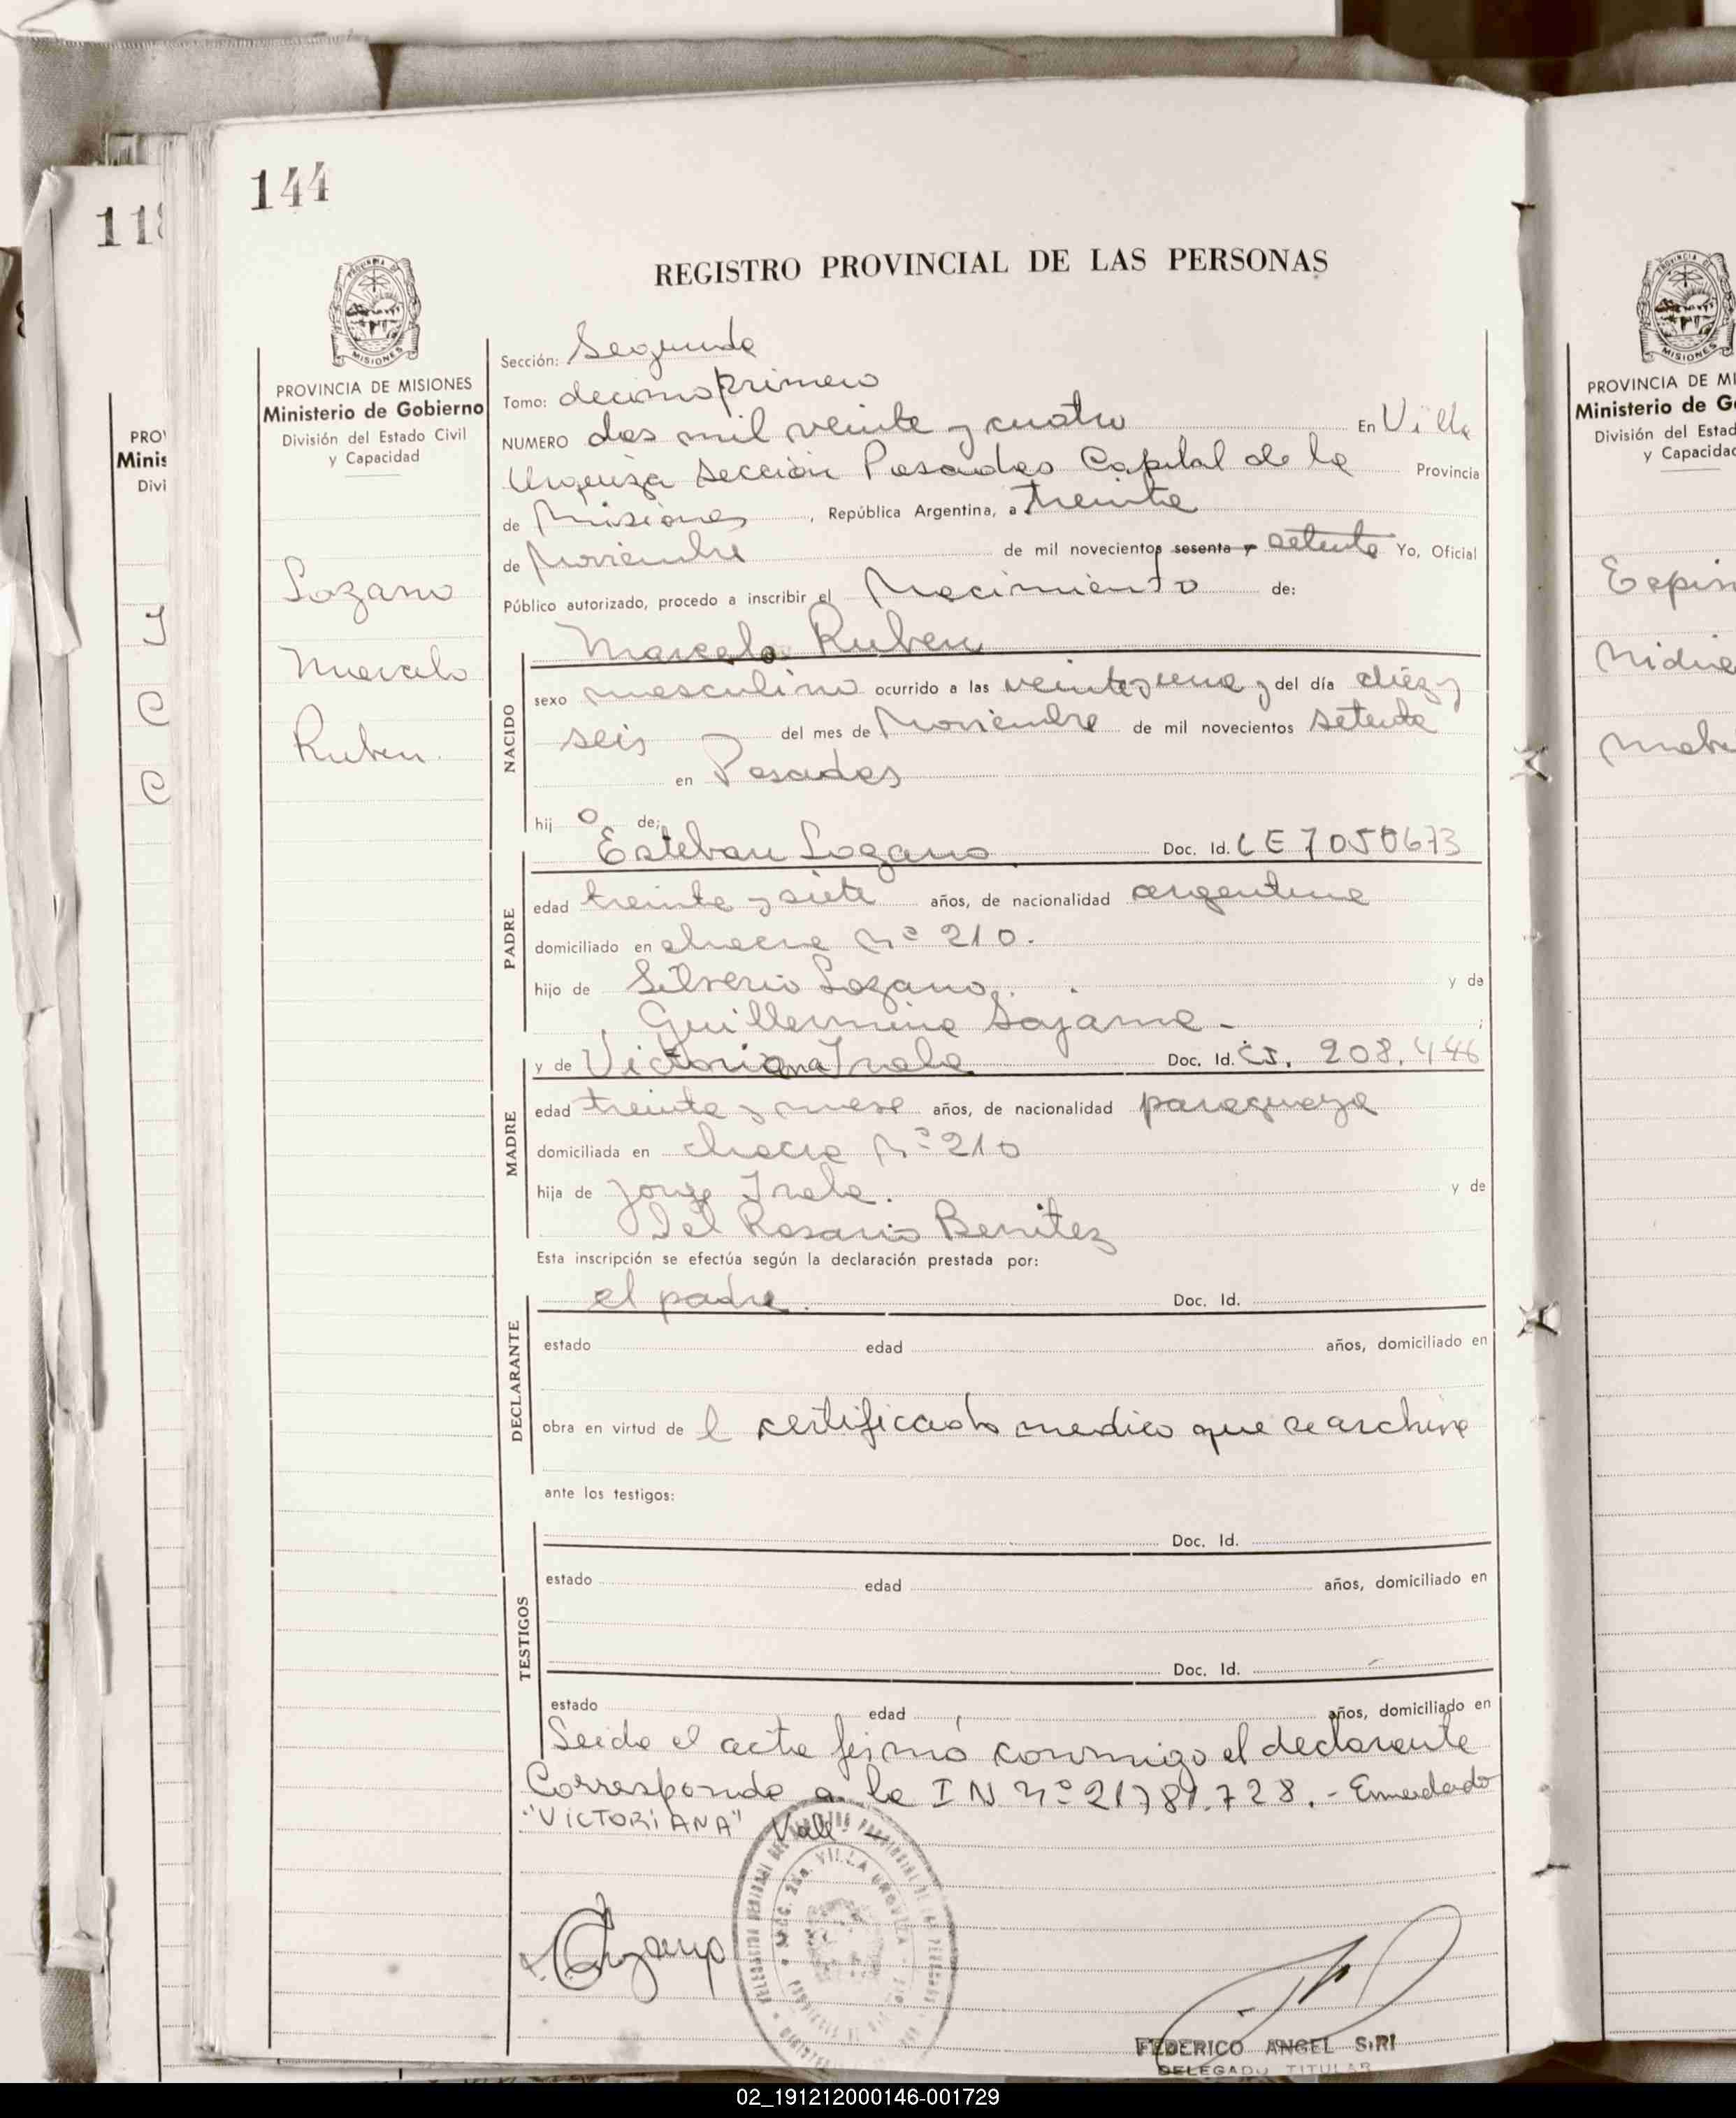 144
118
REGISTRO PROVINCIAL DE LAS PERSONAS
PROVINCIA DE MISIONES
Ministerio de Gobierno
División del Estado Civil
y Capacidad
Lozano
Marcelo
Ruben.
Sección: Segunda
Tomo: decimo primero
NUMERO dos mil veinte y cuatro En Villa
Urquiza Sección Posadas Capital de la Provincia
de Misiones, República Argentina, a treinta
de Noviembre de mil novecientos sesenta y setenta Yo, Oficial
Público autorizado, procedo a inscribir el Nacimiento de:
Marcelo Ruben
NACIDO
sexo masculino ocurrido a las veinte y una y del día diez y
seis del mes de Noviembre de mil novecientos setenta
en Posadas
hijo de:
Esteban Lozano. Doc. Id. LE 7050673
PADRE
edad treinta y siete años, de nacionalidad argentina
domiciliado en chacra Nº 210.
hijo de Silverio Lozano. y de
Guillermina Sajama - ;
y de Victoriana Irala Doc. Id. CI. 208.446
MADRE
edad treinta y nueve años, de nacionalidad paraguaya
domiciliada en chacra Nº 210
hija de Jorge Irala. y de
Del Rosario Benitez
Esta inscripción se efectúa según la declaración prestada por:
el padre. Doc. Id.
DECLARANTE
estado edad años, domiciliado en
obra en virtud de l certificado medico que se archiva
ante los testigos:
Doc. Id.
TESTIGOS
estado edad años, domiciliado en
Doc. Id.
estado edad años, domiciliado en
Leida el acta firmó conmigo el declarante
Corresponde a la IN Nº 21.781.728. - Enmendado
"VICTORIANA" Vale -
Lozano
SECC. 2da. VILLA URQUIZA
FEDERICO ANGEL SIRI
DELEGADO TITULAR
PROVINCIA DE MI
Ministerio de G
División del Estad
y Capacidad
Espin
Nidia
Mabe
02_191212000146-001729